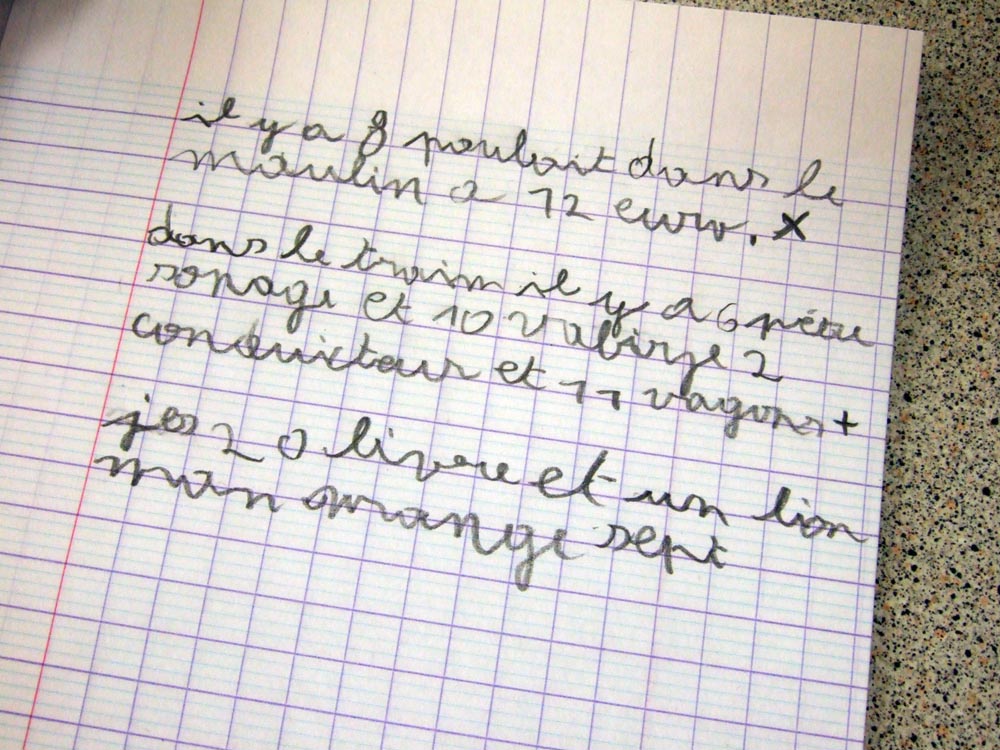 il y a 8 poulait dans le
moulin a 12 euro. x
dans le traim il y a 6
sonage et 10 valirze 2
conduicteur et 11 vagons +
jes 20 livre et un lion
man mange sept